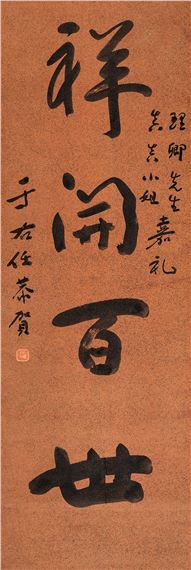 理卿先生
真真小姐 嘉礼
祥開百世
于右任恭賀